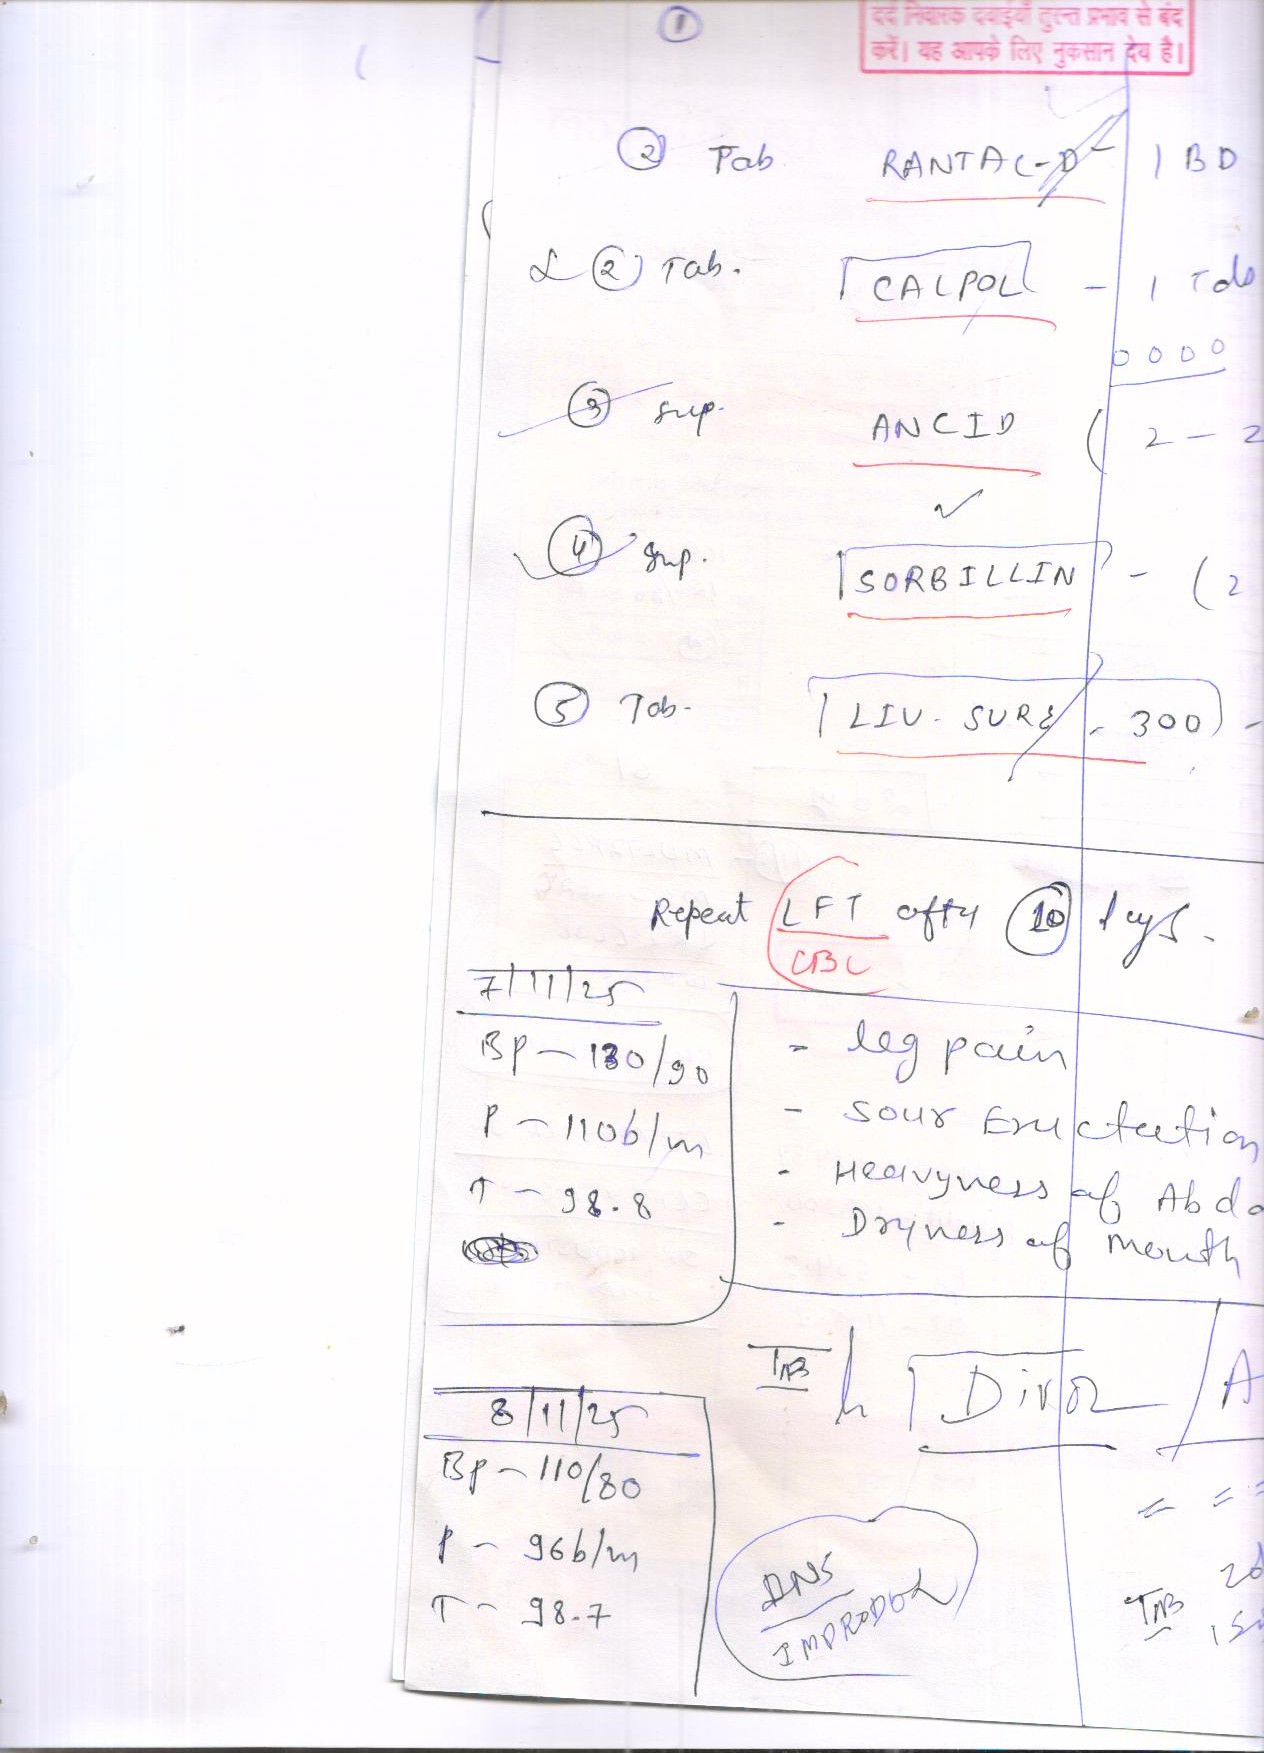 ①
दर्द निवारक दवाईयाँ तुरन्त प्रभाव से बंद
करें। यह आपके लिए नुकसान देय है।
② Tab RANTAC-D - 1 BD
② Tab. CALPOL - 1 Tds
0000
③ Syp. ANCID ( 2 - 2
④ Syp. SORBILLIN - ( 2
⑤ Tab. LIV. SURE - 300 -
Repeat LFT after ⑩ days.
CBC
7/11/25
BP - 130/90
P - 110b/m
T - 98.8
- leg pain
- Sour Eructation
- Heavyness of Abdo
- Dryness of mouth
TAB
8/11/25
BP - 110/80
P - 96b/m
T - 98.7
DNS
IMPRODOL
TAB